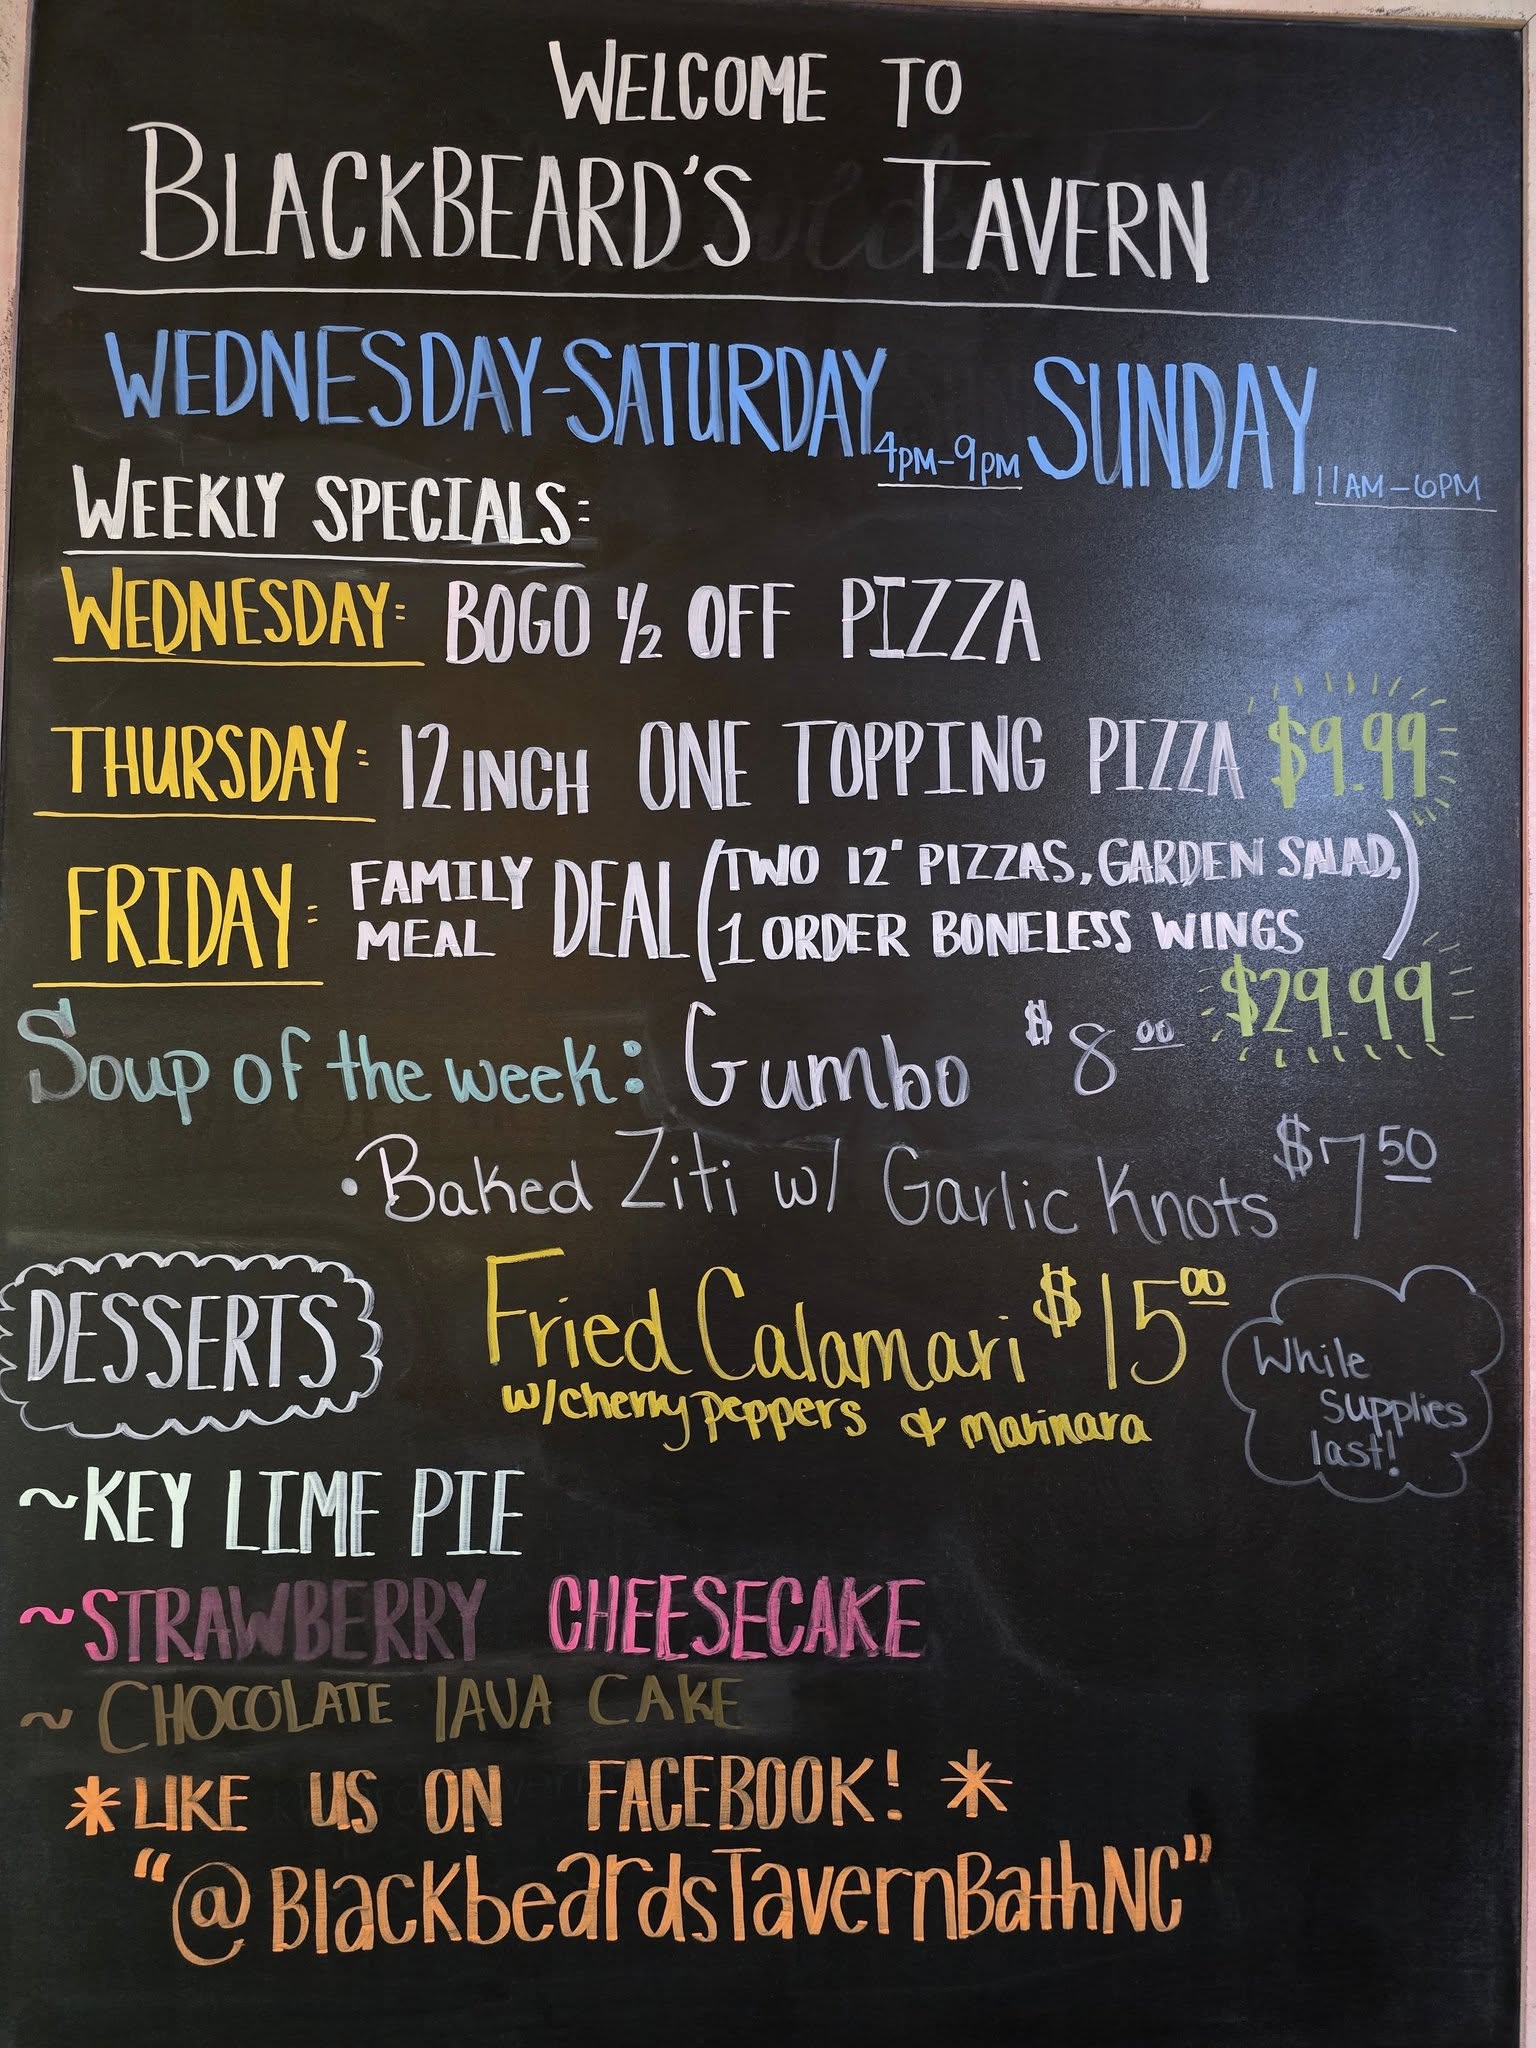 WELCOME TO
BLACKBEARD'S TAVERN
WEDNESDAY-SATURDAY 4PM-9PM SUNDAY 11AM-6PM
WEEKLY SPECIALS:
WEDNESDAY: BOGO 1/2 OFF PIZZA
THURSDAY: 12 INCH ONE TOPPING PIZZA $9.99
FRIDAY: FAMILY MEAL DEAL (TWO 12" PIZZAS, GARDEN SALAD,
1 ORDER BONELESS WINGS)
$29.99
Soup of the week: Gumbo $8.00
• Baked Ziti w/ Garlic Knots $7.50
DESSERTS
Fried Calamari $15.00
w/cherry peppers & marinara
While
supplies
last!
~KEY LIME PIE
~STRAWBERRY CHEESECAKE
~CHOCOLATE JAVA CAKE
*LIKE US ON FACEBOOK! *
"@BlackbeardsTavernBathNC"